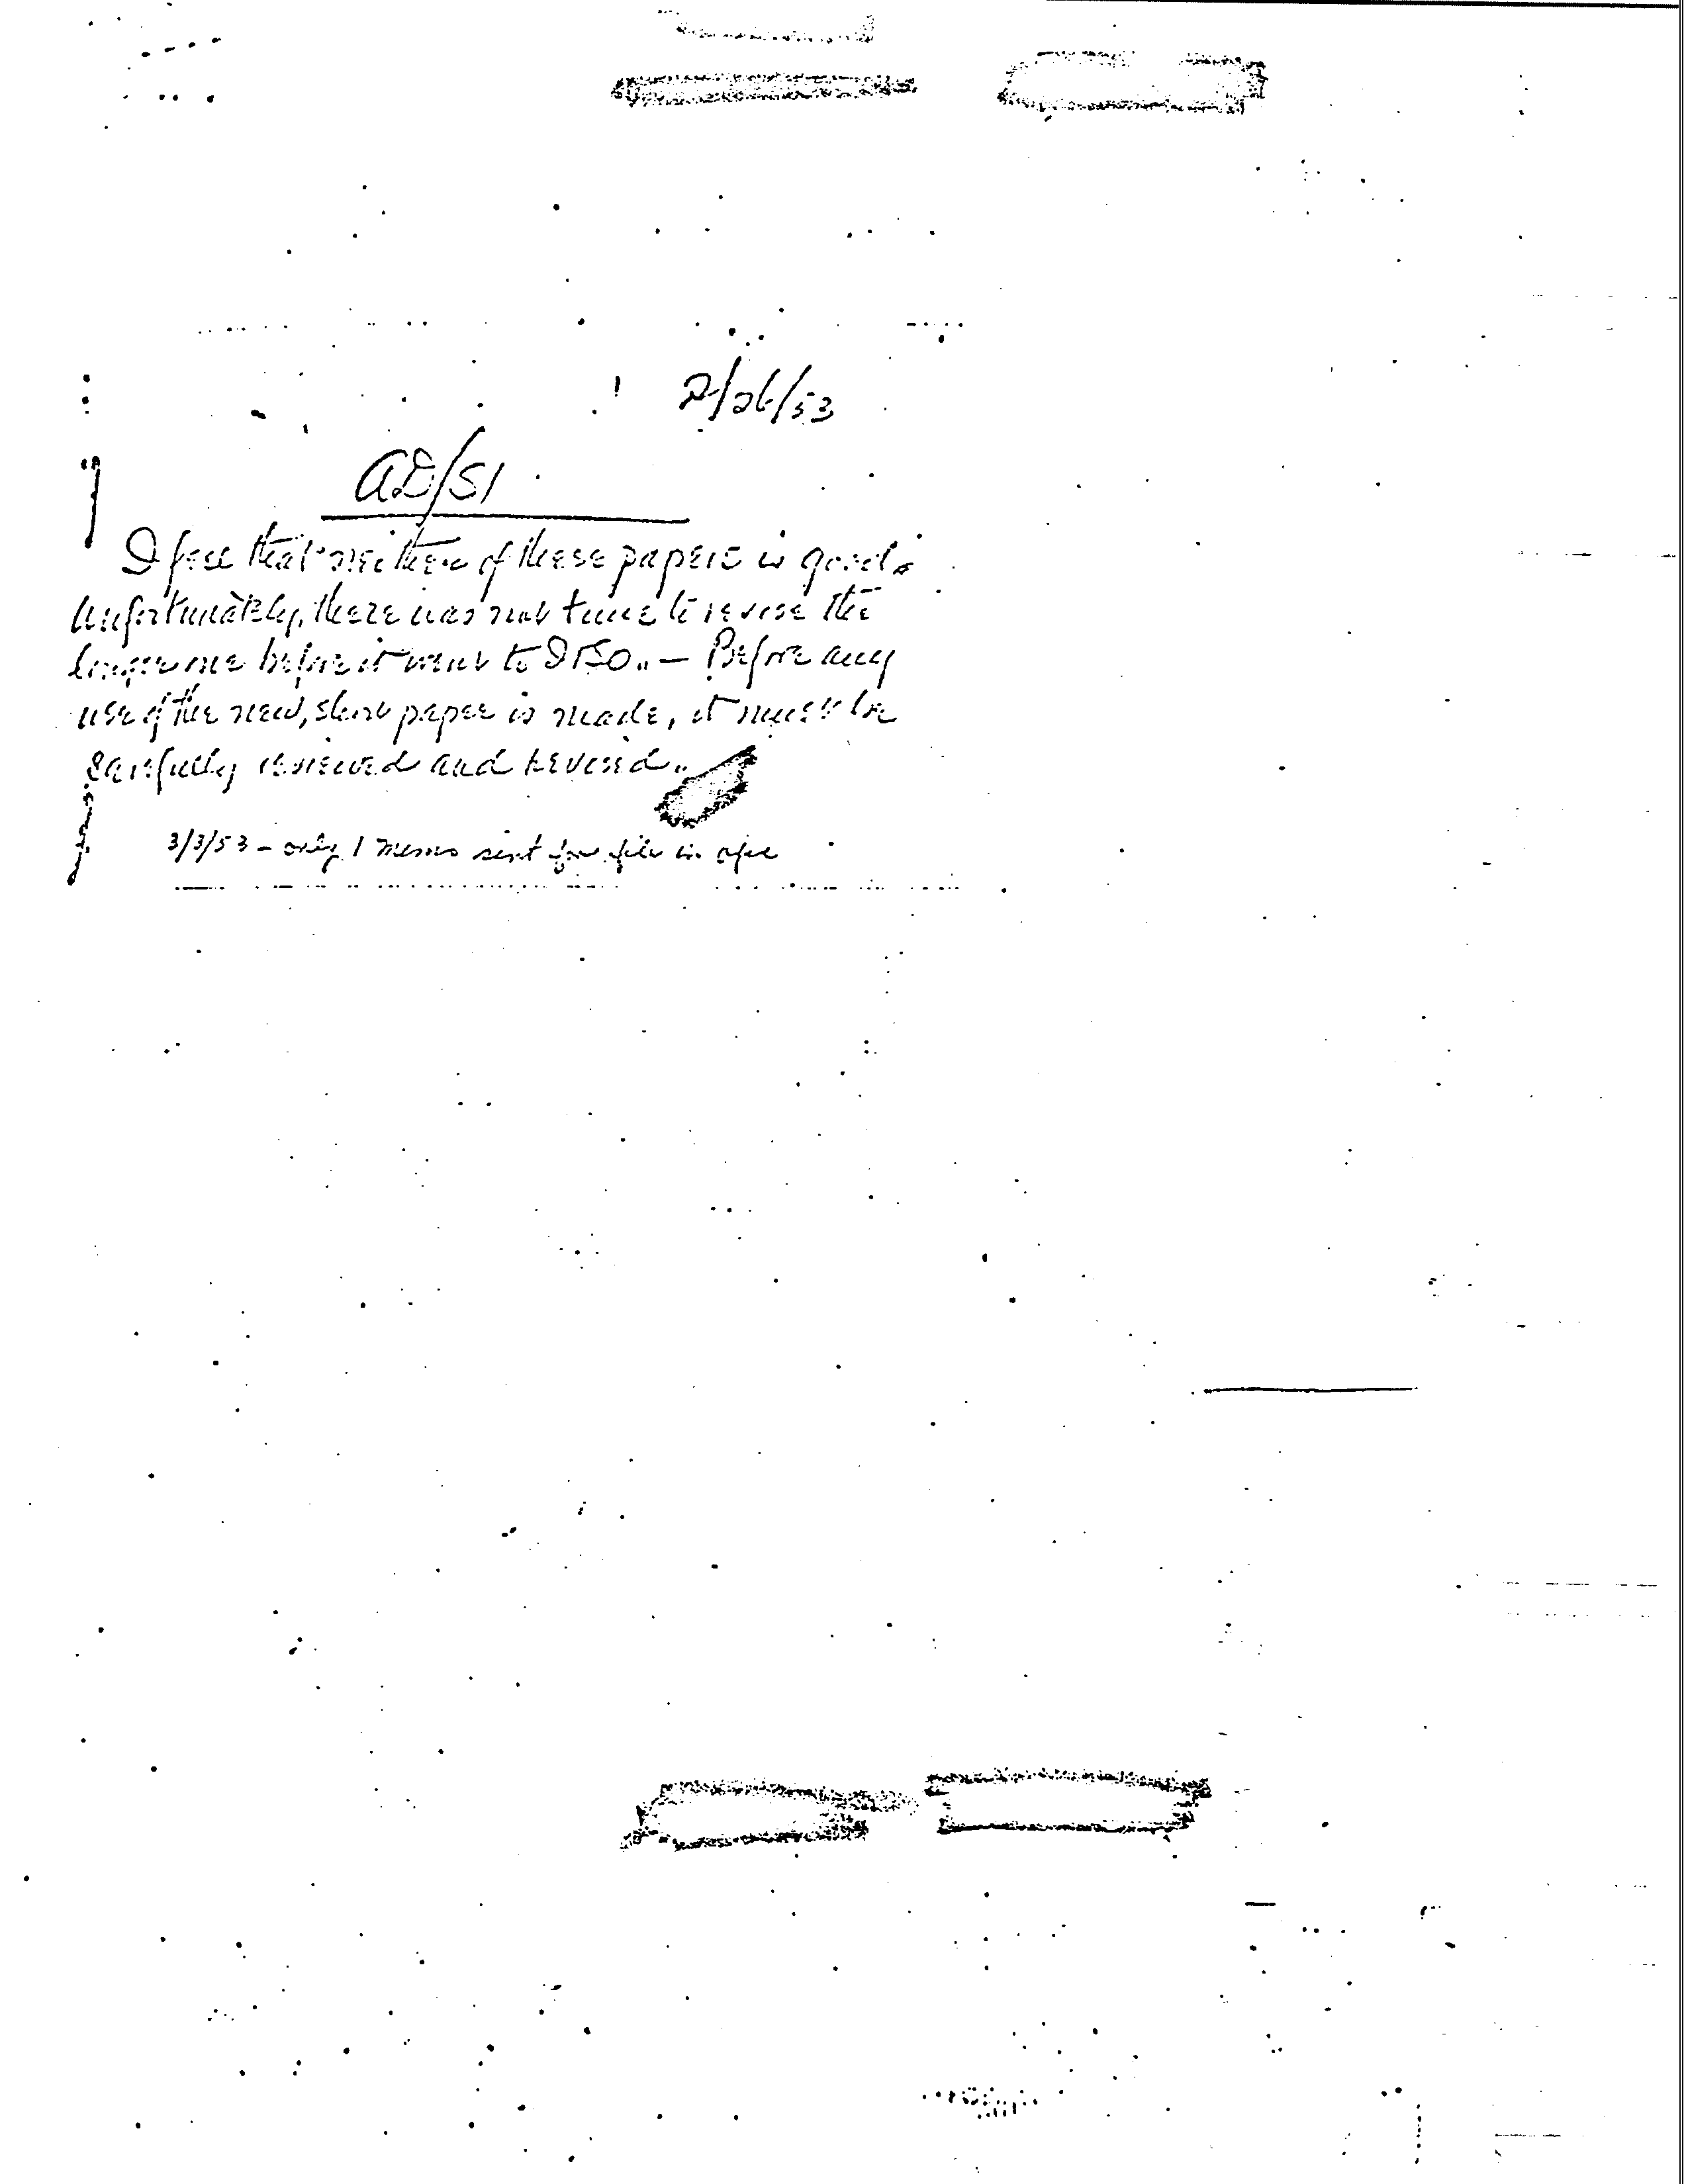 2/26/53
AD/SI
I feel that neither of these papers is good.
Unfortunately, there was not time to revise the
longer one before it went to
— Before any
use of the new, short paper is made, it must be
carefully reviewed and revised.
3/3/53 - only 1 memo sent for file in